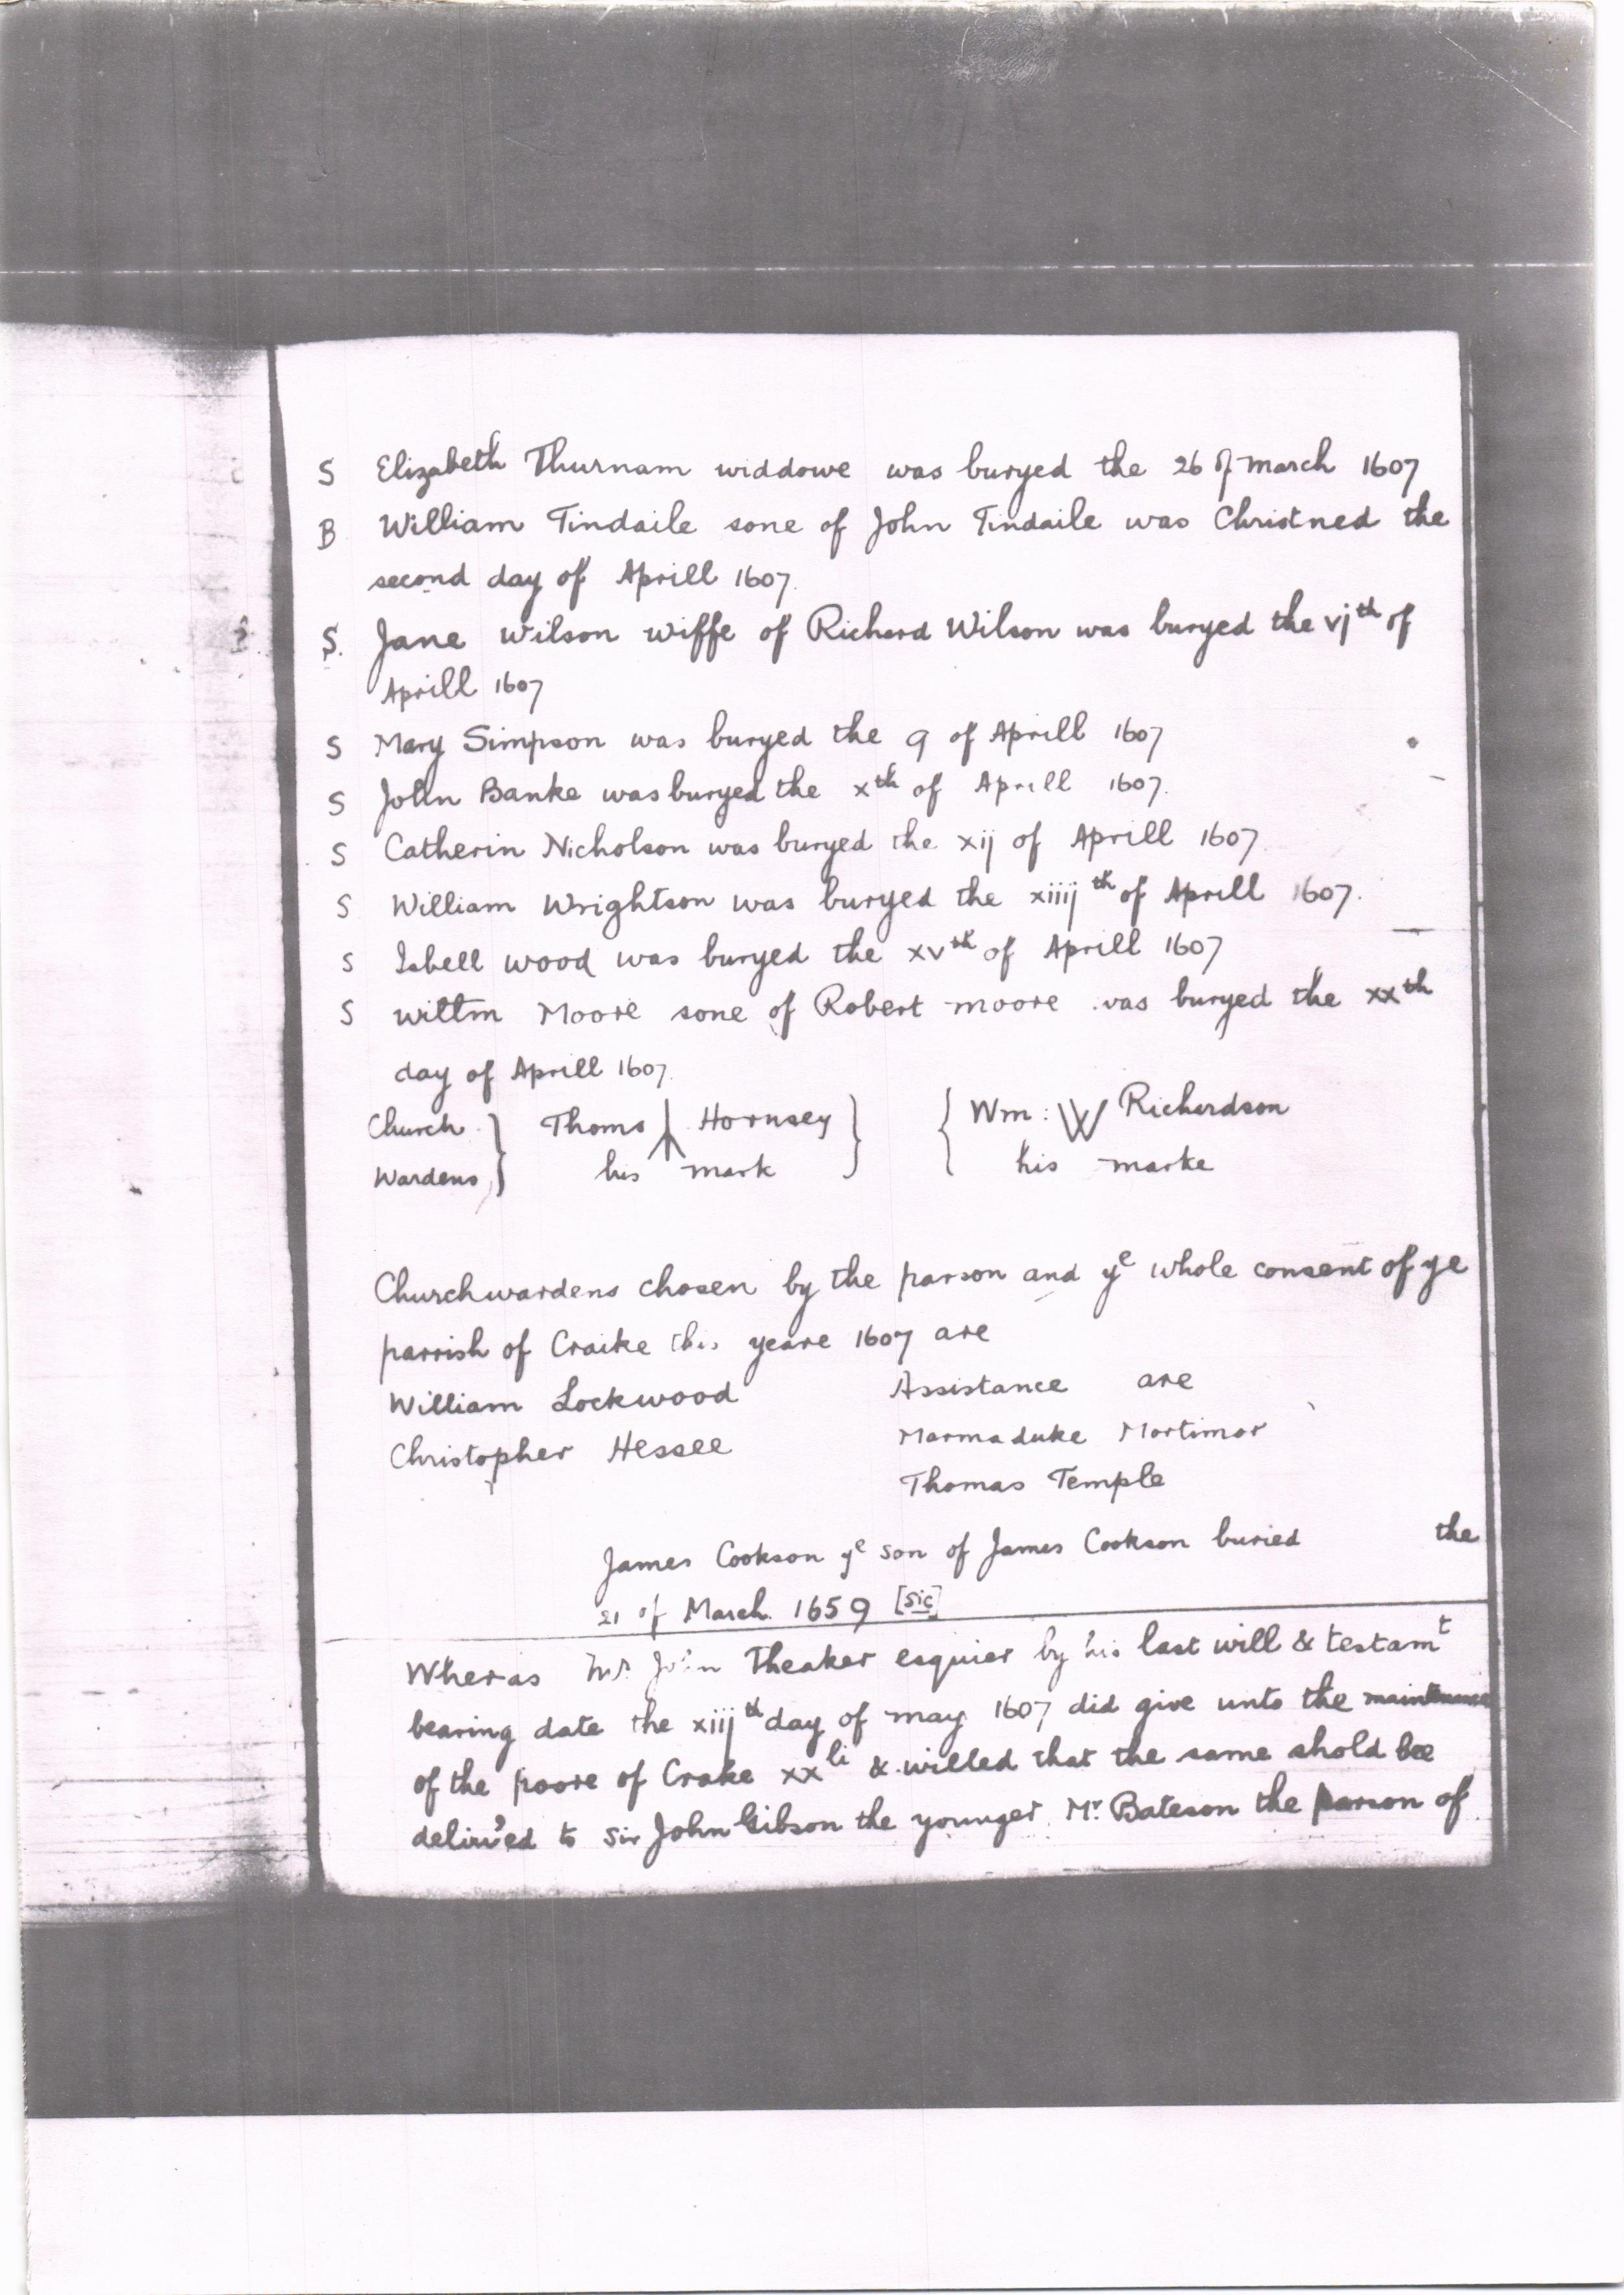 S Elizabeth Thurnam widdowe was buryed the 26 of march 1607
B William Tindaile sone of John Tindaile was Christned the
second day of Aprill 1607.
S. Jane Wilson wiffe of Richard Wilson was buryed the vjth of
Aprill 1607
S Mary Simpson was buryed the 9 of Aprill 1607
S John Banke was buryed the xth of Aprill 1607.
S Catherin Nicholson was buryed the xij of Aprill 1607.
S William Wrightson was buryed the xiiij th of Aprill 1607.
S Isbell wood was buryed the xvth of Aprill 1607
S willm Moore sone of Robert moore was buryed the xxth
day of Aprill 1607.
Church } Thoms Hornsey } { Wm: W Richardson
Wardens } his mark } { his marke
Churchwardens chosen by the parson and ye whole consent of ye
parrish of Craike this yeare 1607 are
William Lockwood Assistance are
Christopher Hessee Marmaduke Mortimor
Thomas Temple
James Cookson ye son of James Cookson buried the
21 of March 1659 [sic]
Wheras Mr. John Theaker esquier by his last will & testamt
bearing date the xiijth day of may 1607 did give unto the maintenance
of the poore of Crake xxli & willed that the same shold bee
deliv'ed to Sir John Gibson the younger Mr Bateson the parson of